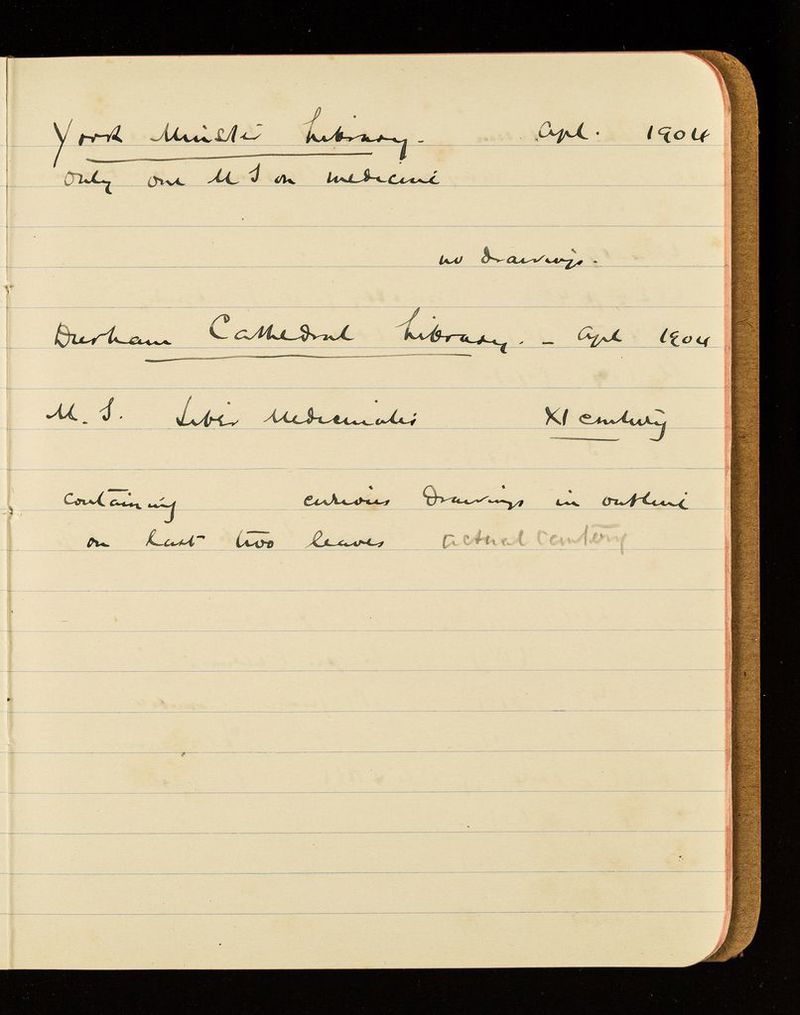 York Minster Library. Apl. 1904
only one M S on medicine
no drawings.
Durham Cathedral Library. – Apl 1904
M. S. Liber Medicinalis XI century
containing curious drawings in outline
on last two leaves actual